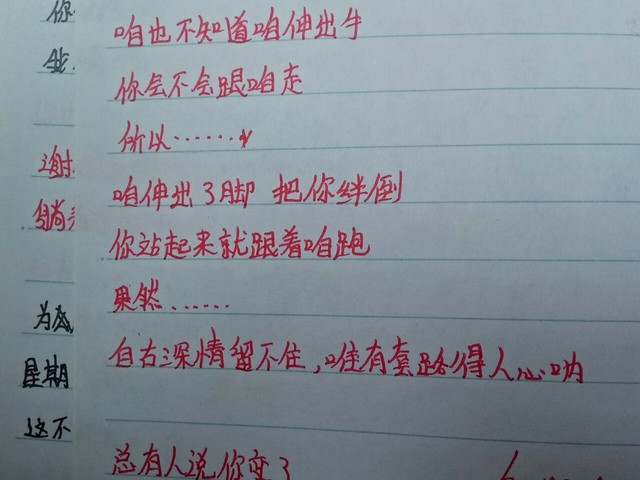 你
我
咱也不知道咱伸出手
你会不会跟咱走
所以……
谢
咱伸出了脚 把你绊倒
躺
你站起来就跟着咱跑
果然……
为
自古深情留不住,唯有套路得人心呐
星期
这不
总有人说你变了